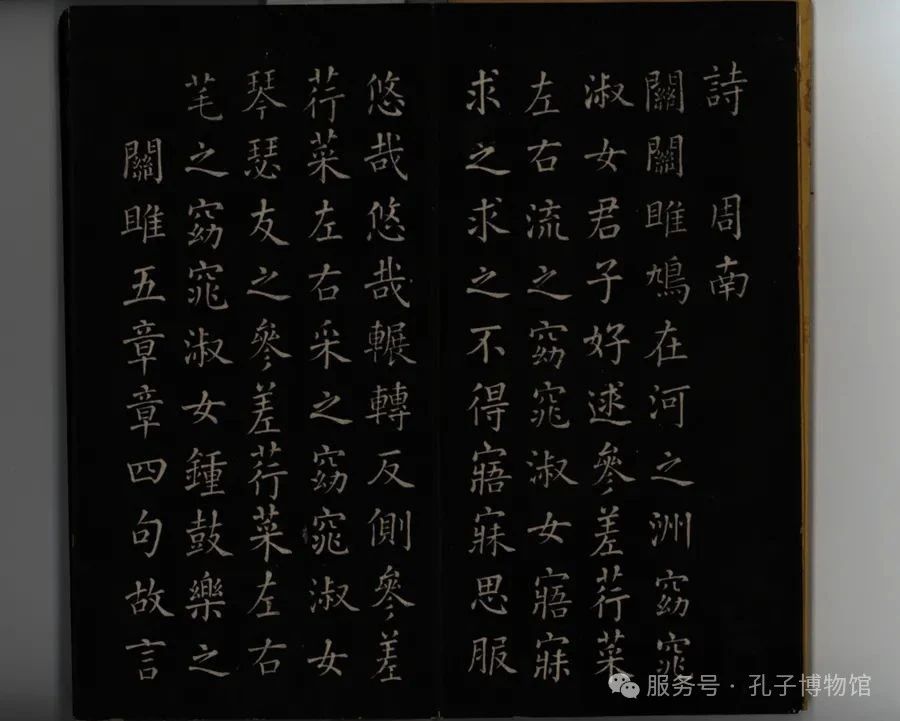 詩　周南
關關雎鳩在河之洲窈窕
淑女君子好逑參差荇菜
左右流之窈窕淑女寤寐
求之求之不得寤寐思服
悠哉悠哉輾轉反側參差
荇菜左右采之窈窕淑女
琴瑟友之參差荇菜左右
芼之窈窕淑女鍾鼓樂之
關雎五章章四句故言
服务号 · 孔子博物馆